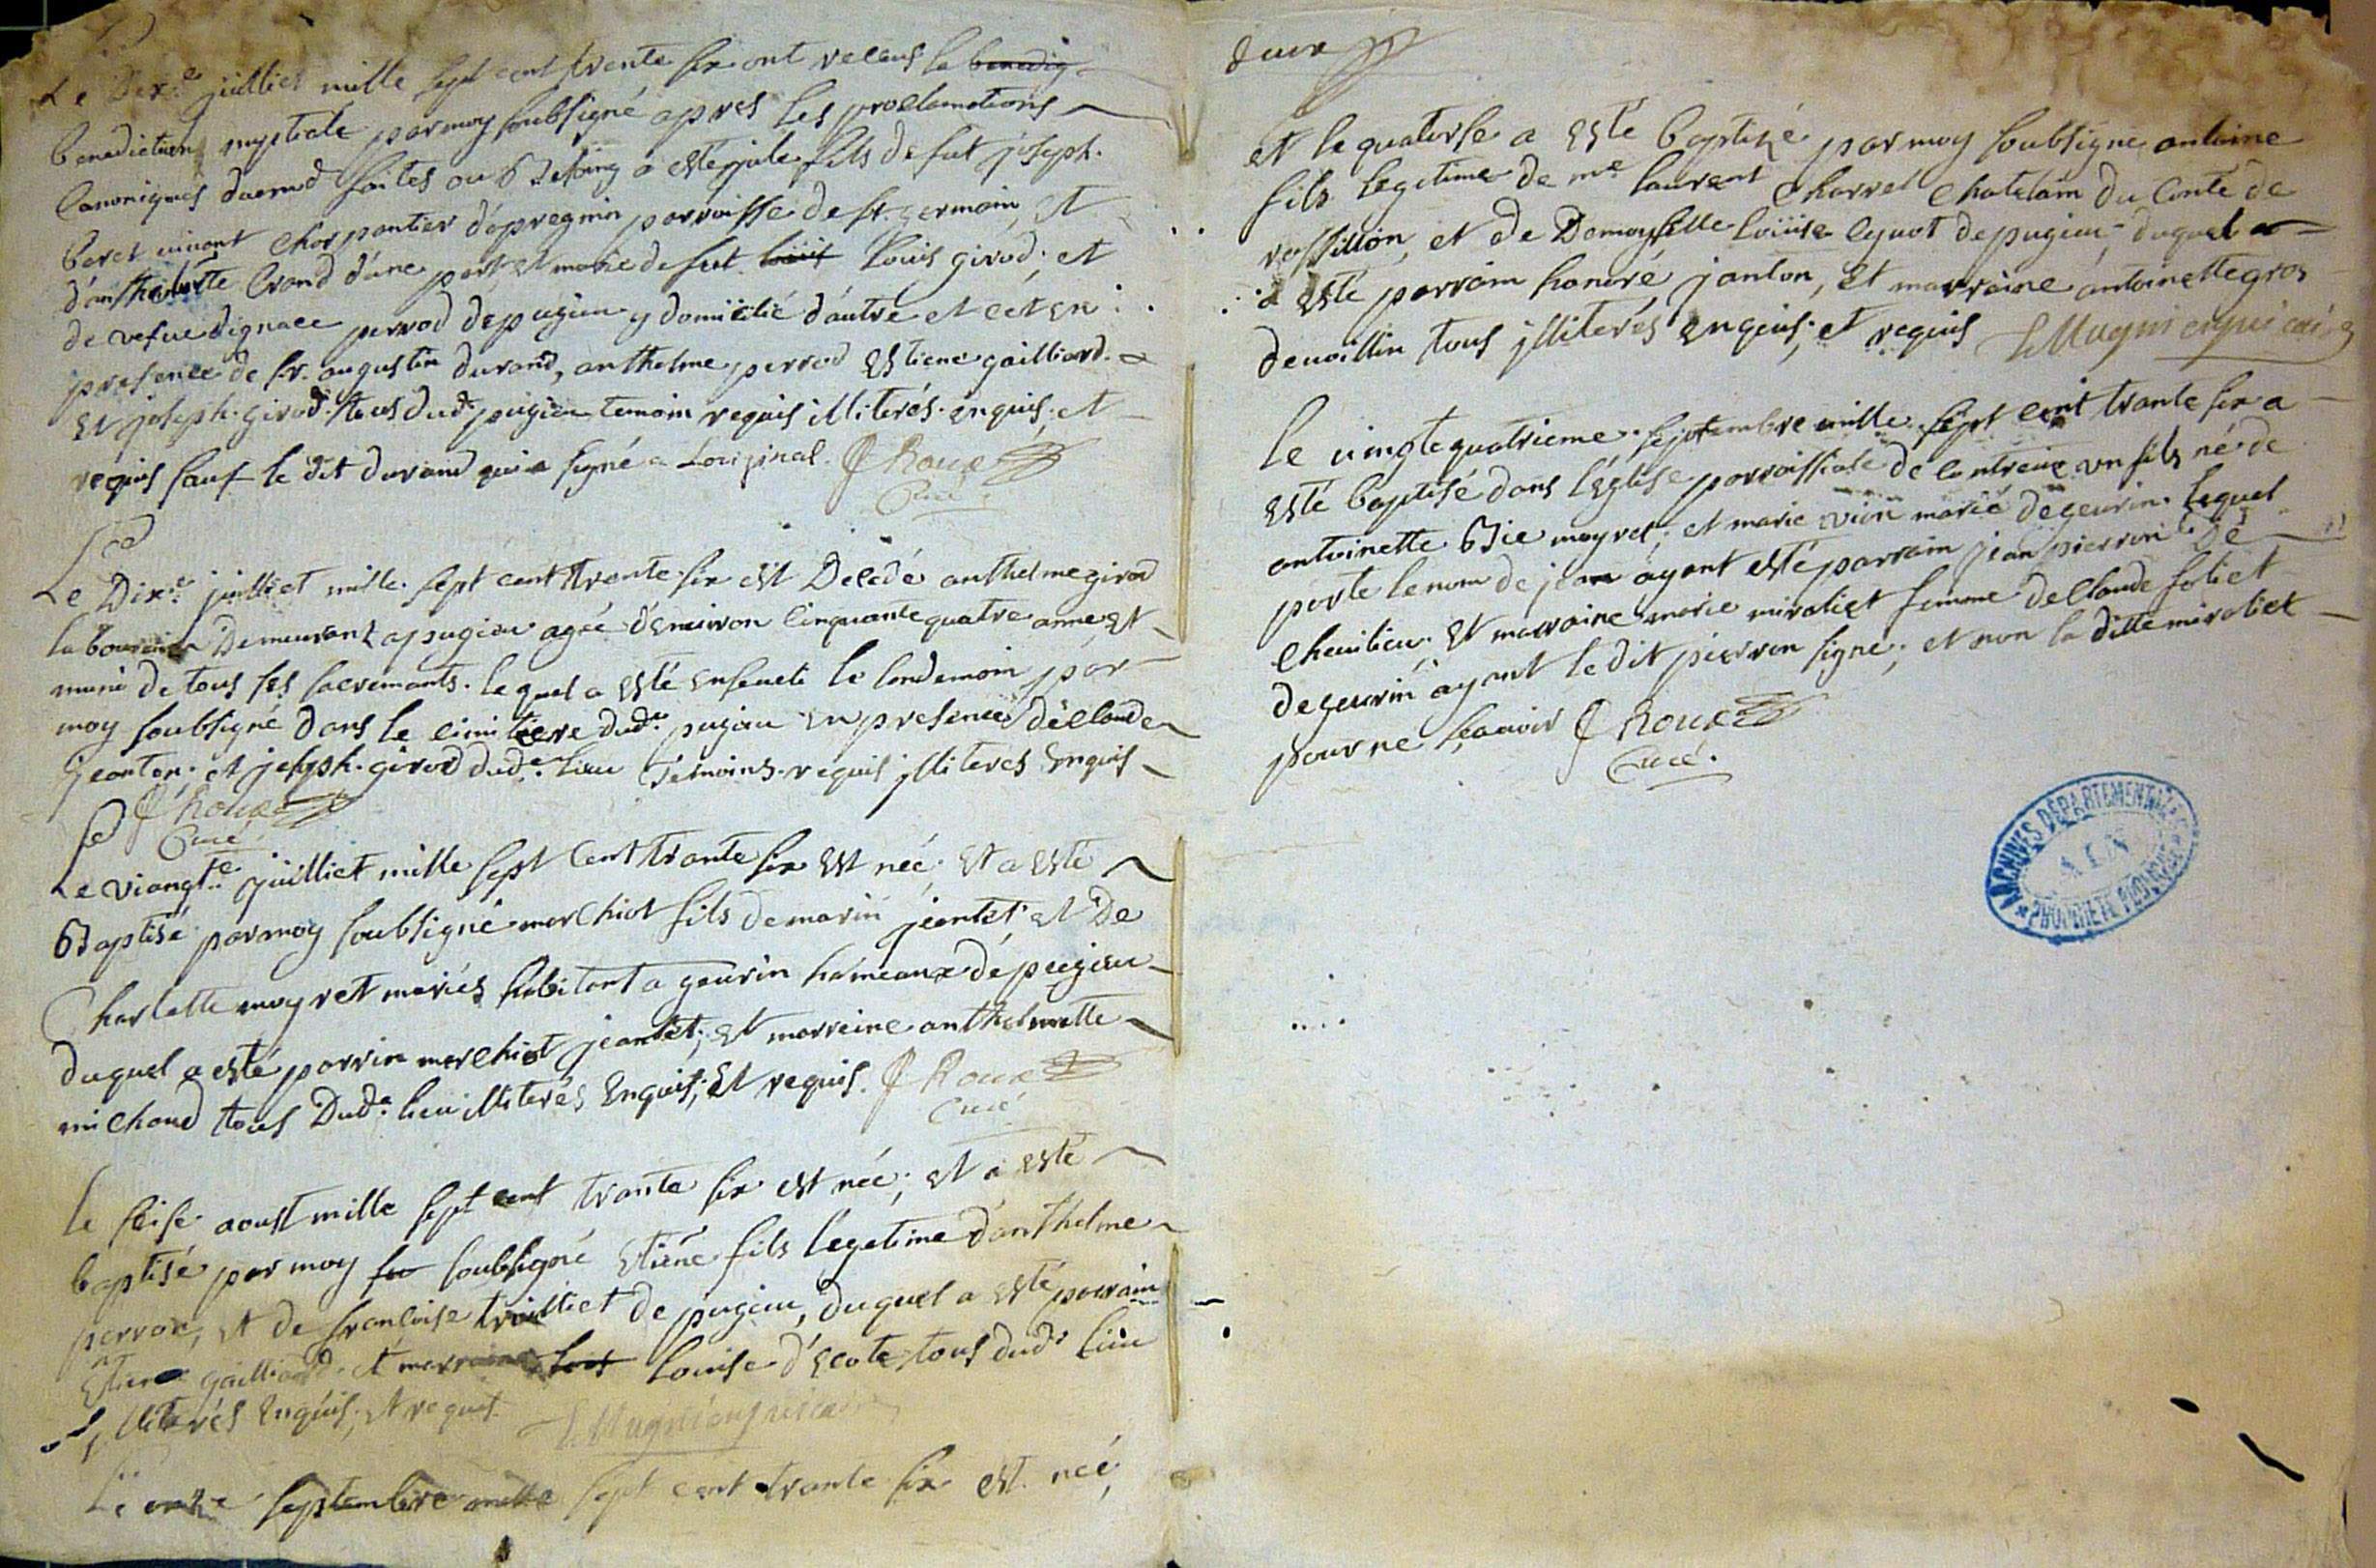 Le Dix.e juilliet mille sept cent trente six ont receus la benedig
benediction nuptiale par moy soubsigné apres les proclamations
Canoniques duemt faites ou Bestring a esté jule fils de fut joseph
beret vivant charpantier d'apregnin parroisse de st. germain, et
d'anthelmette brand d'une part et marie de fut louis Louis girod, et
de vefue dignace perrod de pugieu y domicilié d'autre et cet en
presence de sr. augustin durand, anthelme perrod Estiene gailliard
Et joseph girod tous dud. pugieu temoin requis illiterés enquis, et
requis sauf le dit durand qui a signé a Loriginal. J Roux
Curé
Le Dix.e juilliet mille sept cent trente six est Decedé anthelme girod
laboureur Demeurant a pugieu agée d'environ Cinquante quatre anne, et
muni de tous ses sacremants. lequel a esté enseveli le londemain par
moy soubsigné dans le cimitiere dud.t pugieu en presence de Claude
Geanton, et joseph girod dud.t lieu Témoins requis jlliteres Enquis
J Roux
Curé
Le viangt.e juilliet mille sept Cent trante six est née, et a esté
Baptisé par moy soubsigné marchiot fils de marin jeantet, et De
Charlotte moyret mariés habitant a geurin hameaux de pugieu
duquel a esté parrin marchiot jeantet, et marreine anthelmette
michaud tous Dud.t lieu illiterés Enquis, Et requis. J Roux
Curé
le seise aoust mille sept cent trante six est née, et a esté
baptisé par moy sou soubsigné Etiéne fils legetime d'anthelme
perrod, et de francoise trailliet de pugieu, duquel a esté parrain
Etiene gailliard et marraine louis louise d'écote tous dud.t lieu
jlliterés Enquis, et requis.
Le onze septembre mille sept cent trante six est née,
deux
et le quatorse a esté baptizé par moy soubsigné antoine
fils legetime de me laurent Charvet chatelain du Conte de
rossillon, et de Demoyselle Loüise Cynot de pugieu duquel a
a esté parrain honoré janton, et marraine antoinette gros
de voillin tous jlliterés enquis, et requis
le vingtequatrieme septembre mille sept cent trante six a
esté baptisé dans l'église parroissiale de Contreux un fils né de
antoinette Bie mayret, et marie vion marié de geurin lequel
porte le nom de jean ayant esté parrain jean pierron de
Cheuilieu et marraine marie miraliet femme de Claude soliet
de geurin ayant le dit pierron signé, et non la ditte miraliet
pour ne scavoir J Roux
Curé.
ARCHIVES DÉPARTEMENTALES
AIN
PROPRIÉTÉ PUBLIQUE